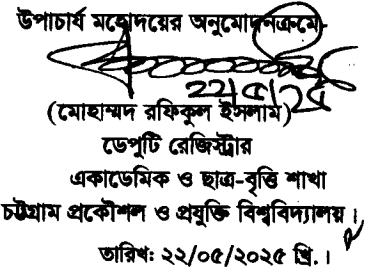 উপাচার্য মহোদয়ের অনুমোদনক্রমে-
২২/৫/২৫
(মোহাম্মদ রফিকুল ইসলাম)
ডেপুটি রেজিস্ট্রার
একাডেমিক ও ছাত্র-বৃত্তি শাখা
চট্টগ্রাম প্রকৌশল ও প্রযুক্তি বিশ্ববিদ্যালয়।
তারিখ: ২২/০৫/২০২৫ খ্রি.।